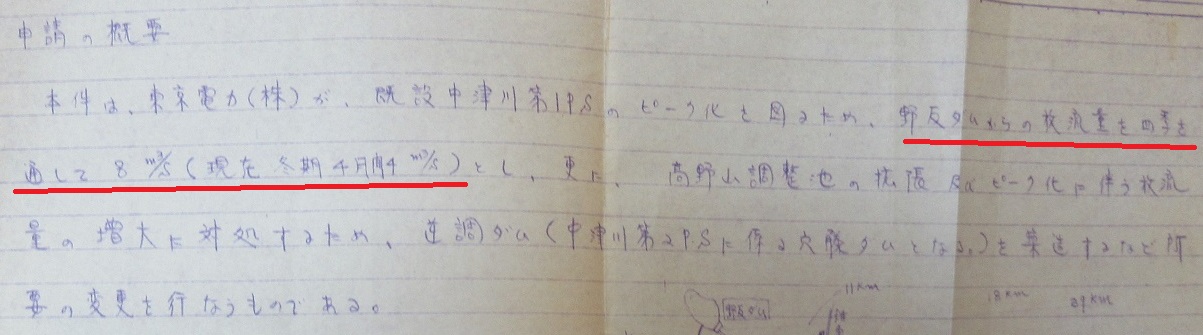 申請の概要
本件は、東京電力(株)が、既設中津川第1P.Sのピーク化を図るため、野反ダムからの放流量を四季を
通して8㎥/s(現在冬期4月間4㎥/s)とし、更に、高野山調整池の拡張及ピーク化に伴う放流
量の増大に対処するため、逆調ダム(中津川第2P.Sに係る穴藤ダムとなる。)を築造するなど所
要の変更を行なうものである。
野反ダム 11km 18km